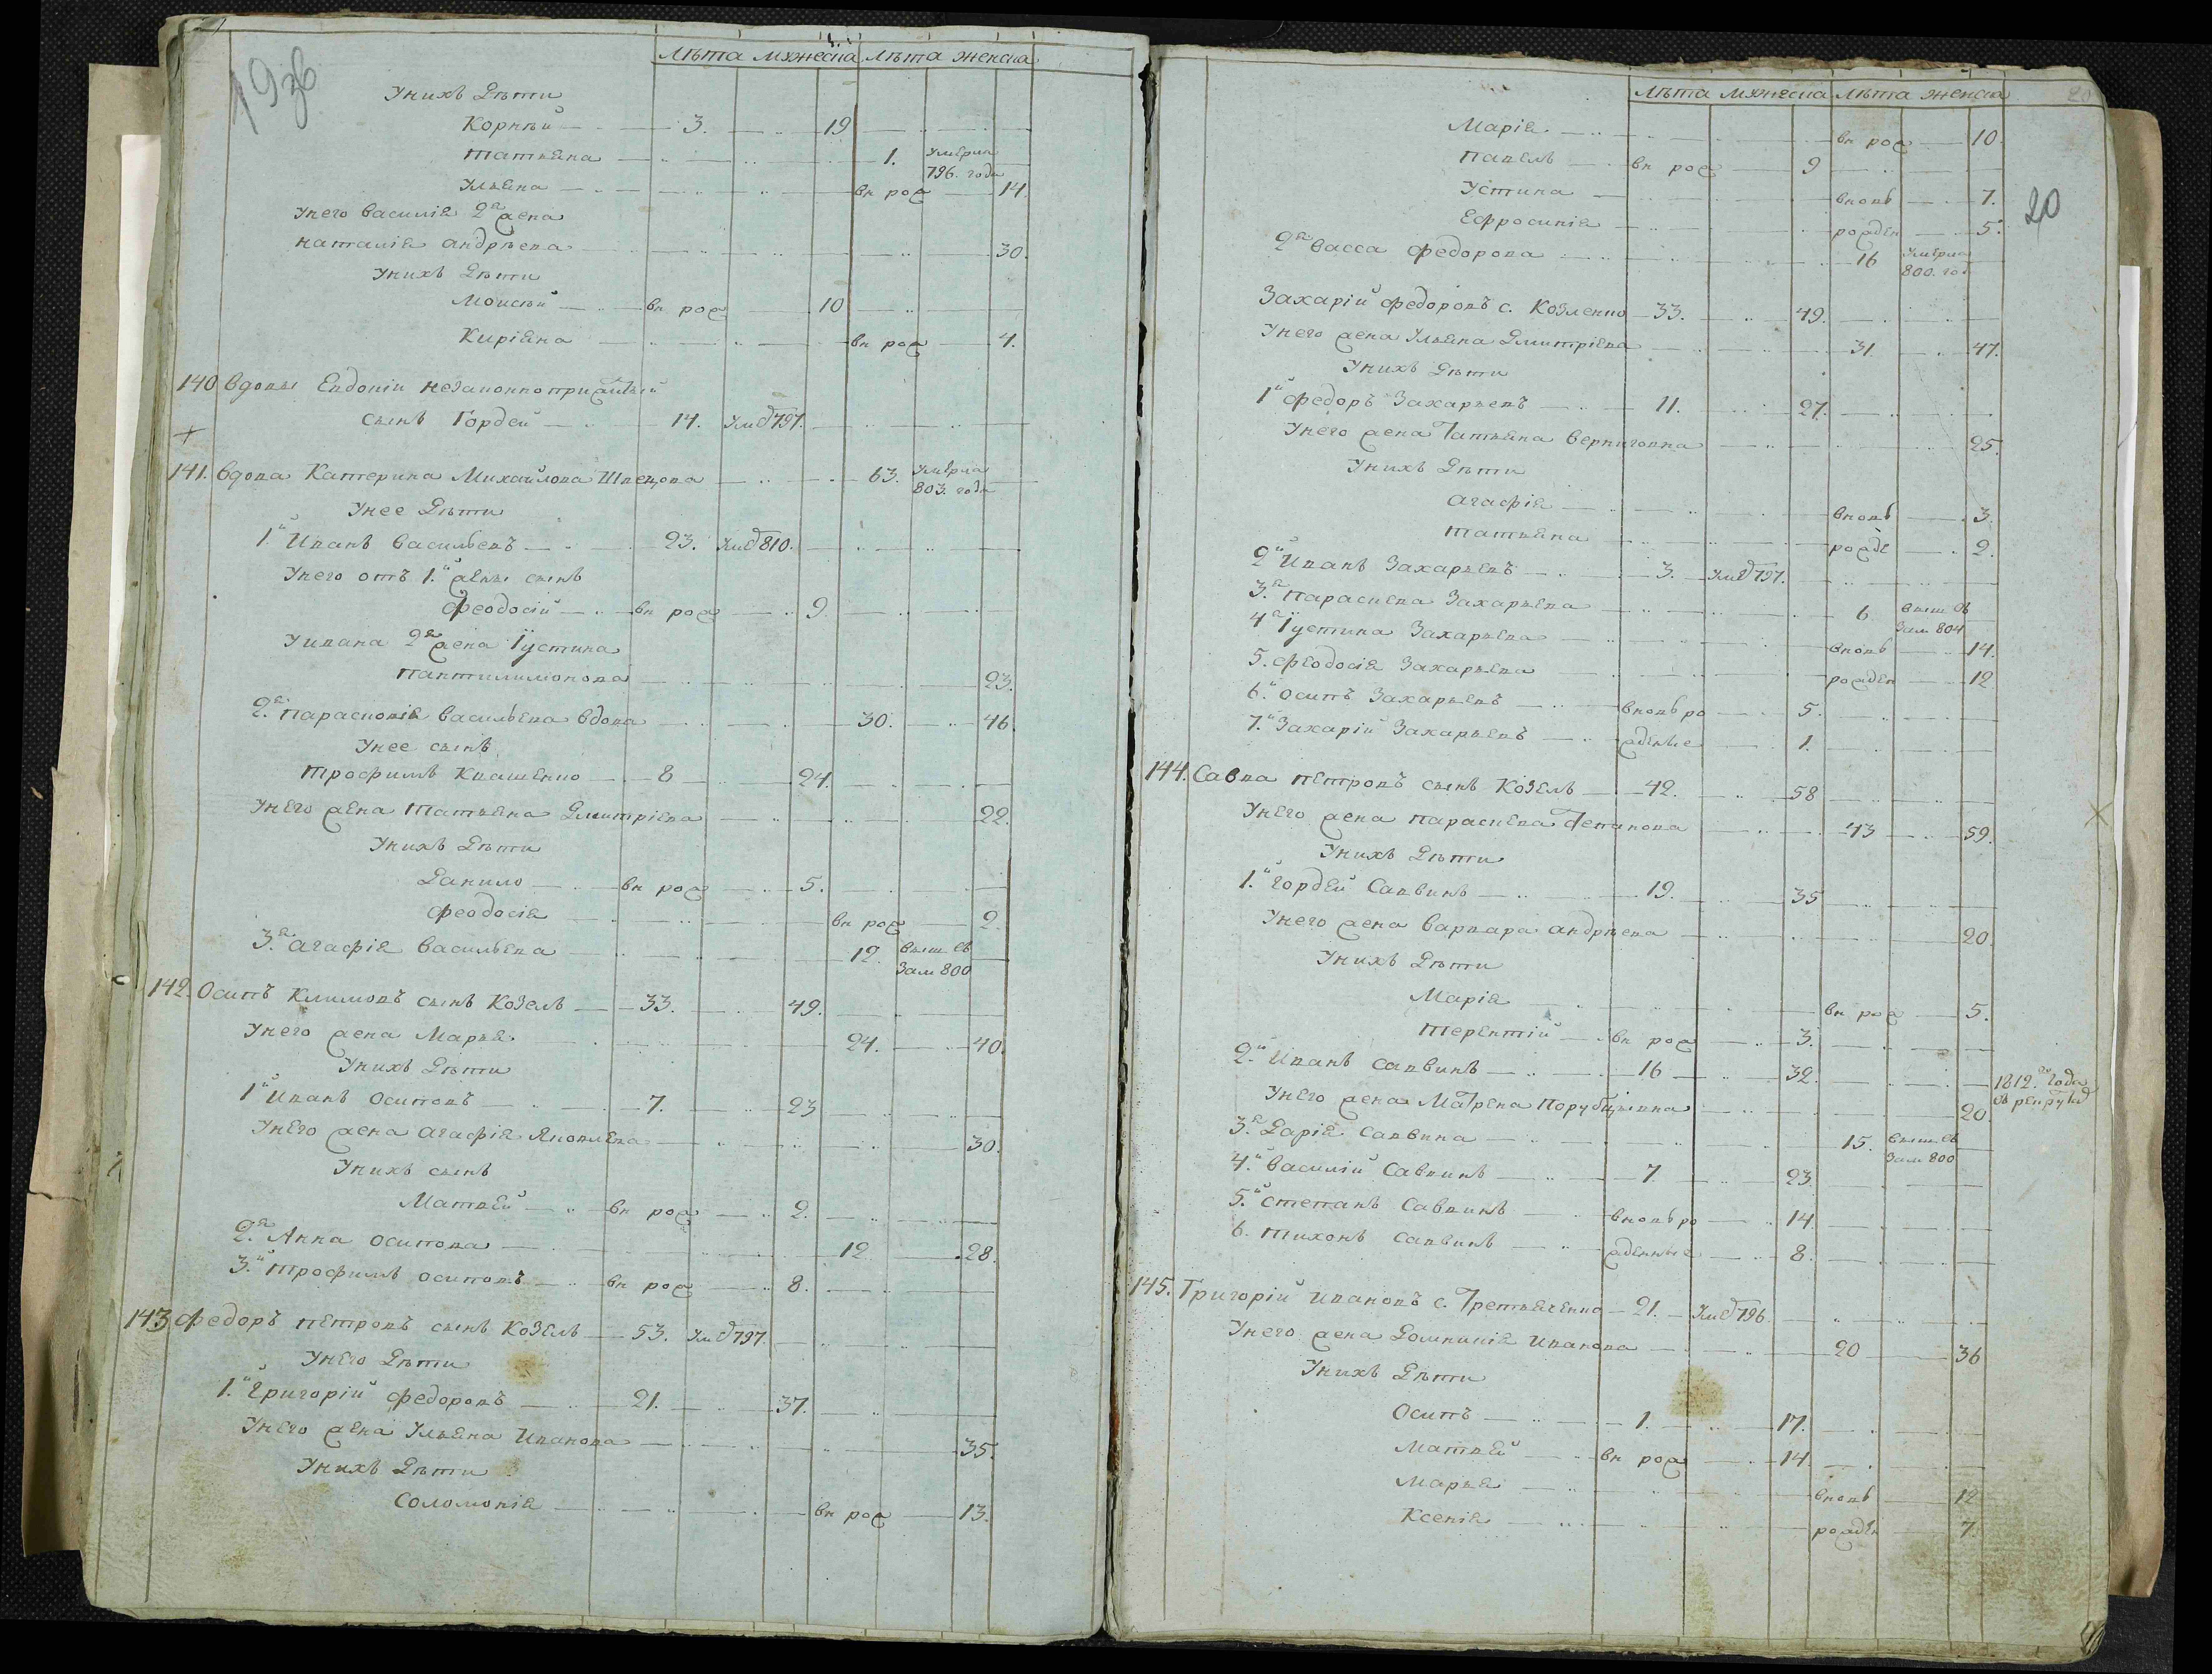 19 зв
Лѣта мужеска Лѣта женска
Унихъ Дѣти
Корнѣй 3. 19
Татьяна 1. Умерла 796. года
Ульяна вн рож 14.
Унего Василія 2я жена
Наталія Андрѣева 30.
Унихъ Дѣти
Моисѣй вн рож 10
Киріяна вн рож 4.
140 Вдовы Евдокіи
сынъ Гордей 14. Ум в 797.
141. Вдова Катерина Михайлова Швецова 63. Умерла 803. года
Унее Дѣти
1.й Иванъ Васильевъ 23. Ум в 810.
Унего отъ 1.й жены сынъ
Феодосій вн рож 9.
Уивана 2я жена Іустина
Пантилимонова 23.
2.я Парасковія Васильева вдова 30. 46.
Унее сынъ
Трофимъ Квашенко 8 24.
Унего жена Татьяна Дмитріева 22.
Унихъ Дѣти
Данило вн рож 5.
Феодосія вн рож 2.
3.я Агафія Васильева 12. выш въ Зам 800
142. Осипъ Климовъ сынъ Козелъ 33. 49.
Унего жена Марья 24. 40.
Унихъ Дѣти
1й Иванъ Осиповъ 7. 23
Унего жена Агафія Яковлева 30.
Унихъ сынъ
Матвей вн рож 2.
2.я Анна Осипова 12 28.
3.й Трофимъ Осиповъ вн рож 8.
143 Федоръ Петровъ сынъ Козелъ 53. Ум в 797.
Унего Дѣти
1.й Григорій Федоровъ 21. 37.
Унего жена Ульяна Иванова 35.
Унихъ Дѣти
Соломонія вн рож 13.
Лѣта мужеска Лѣта женска 20
20
Марія вн рож 10.
Павелъ вн рож 9
Устина вновь 7.
Ефросинія рожден 5.
2я Васса Федорова 16 Умерла 800. год
Захарій Федоровъ с. Козленко 33. 49.
Унего жена Ульяна Дмитріева 31. 47.
Унихъ Дѣти
1й Федоръ Захарьевъ 11. 27.
Унего жена Татьяна Верниговна 25.
Унихъ Дѣти
Агафія вновь 3.
Татьяна рожде 2.
2й Иванъ Захарьевъ 3. Ум в 797.
3.я Параскева Захарьева 6 выш въ Зам 804
4я Іустина Захарьева вновь 14.
5. Феодосія Захарьева рожден 12
6.й Осипъ Захарьевъ вновь ро 5.
7.й Захарій Захарьевъ жденые 1.
144. Савва Петровъ сынъ Козелъ 42. 58
Унего жена Параскева Степанова 43 59.
Унихъ Дѣти
1.й Гордей Саввинъ 19. 35
Унего жена Варвара Андрѣева 20.
Унихъ Дѣти
Марія вн рож 5.
Терентій вн рож 3.
2.й Иванъ Саввинъ 16 32. 1812.го года въ рекруты
Унего жена Матрена Порубцовна 20
3.я Дарія Саввина 15. выш въ Зам 800
4.й Василій Саввинъ 7 23.
5.й Степанъ Саввинъ вновь ро 14.
6. Тихонъ Саввинъ жденные 8.
145. Григорій Ивановъ с. Третьяченко 21. Ум в 796.
Унего жена Домникія Иванова 20 36
Унихъ Дѣти
Осипъ 1. 17.
Матвей вн рож 14.
Марья вновь 12
Ксенія рожден 7.